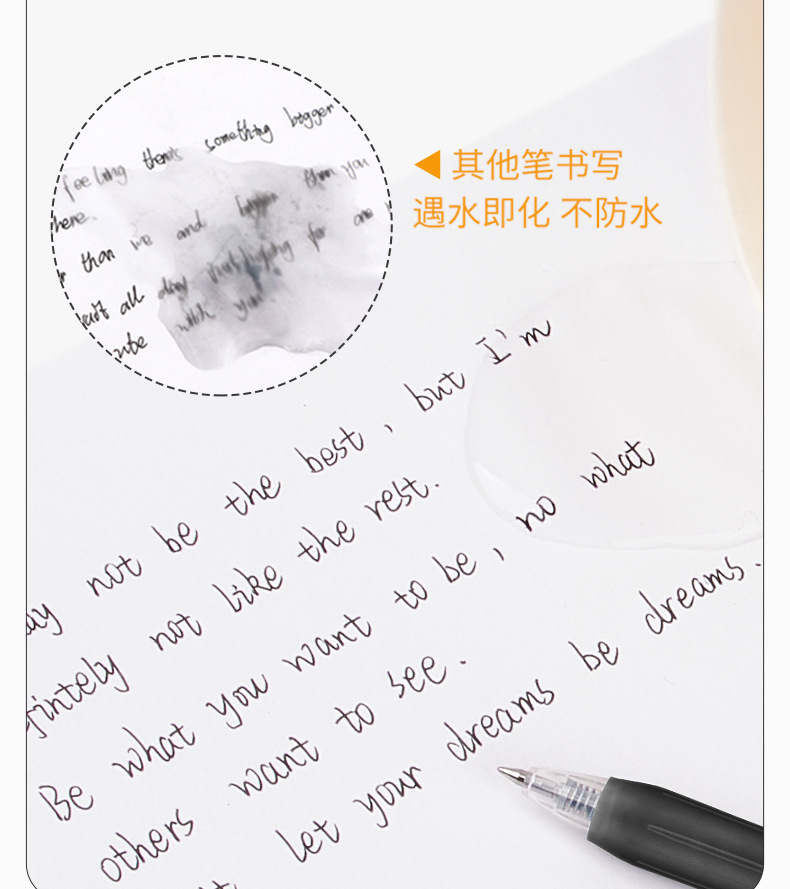 feeling there's something bigger
than you
here.
than we and
for are
just all day
with you
其他笔书写
遇水即化 不防水
I'm
not be the best, but
not like the rest.
Be what you want to be, no what
others want to see.
let your dreams be dreams.